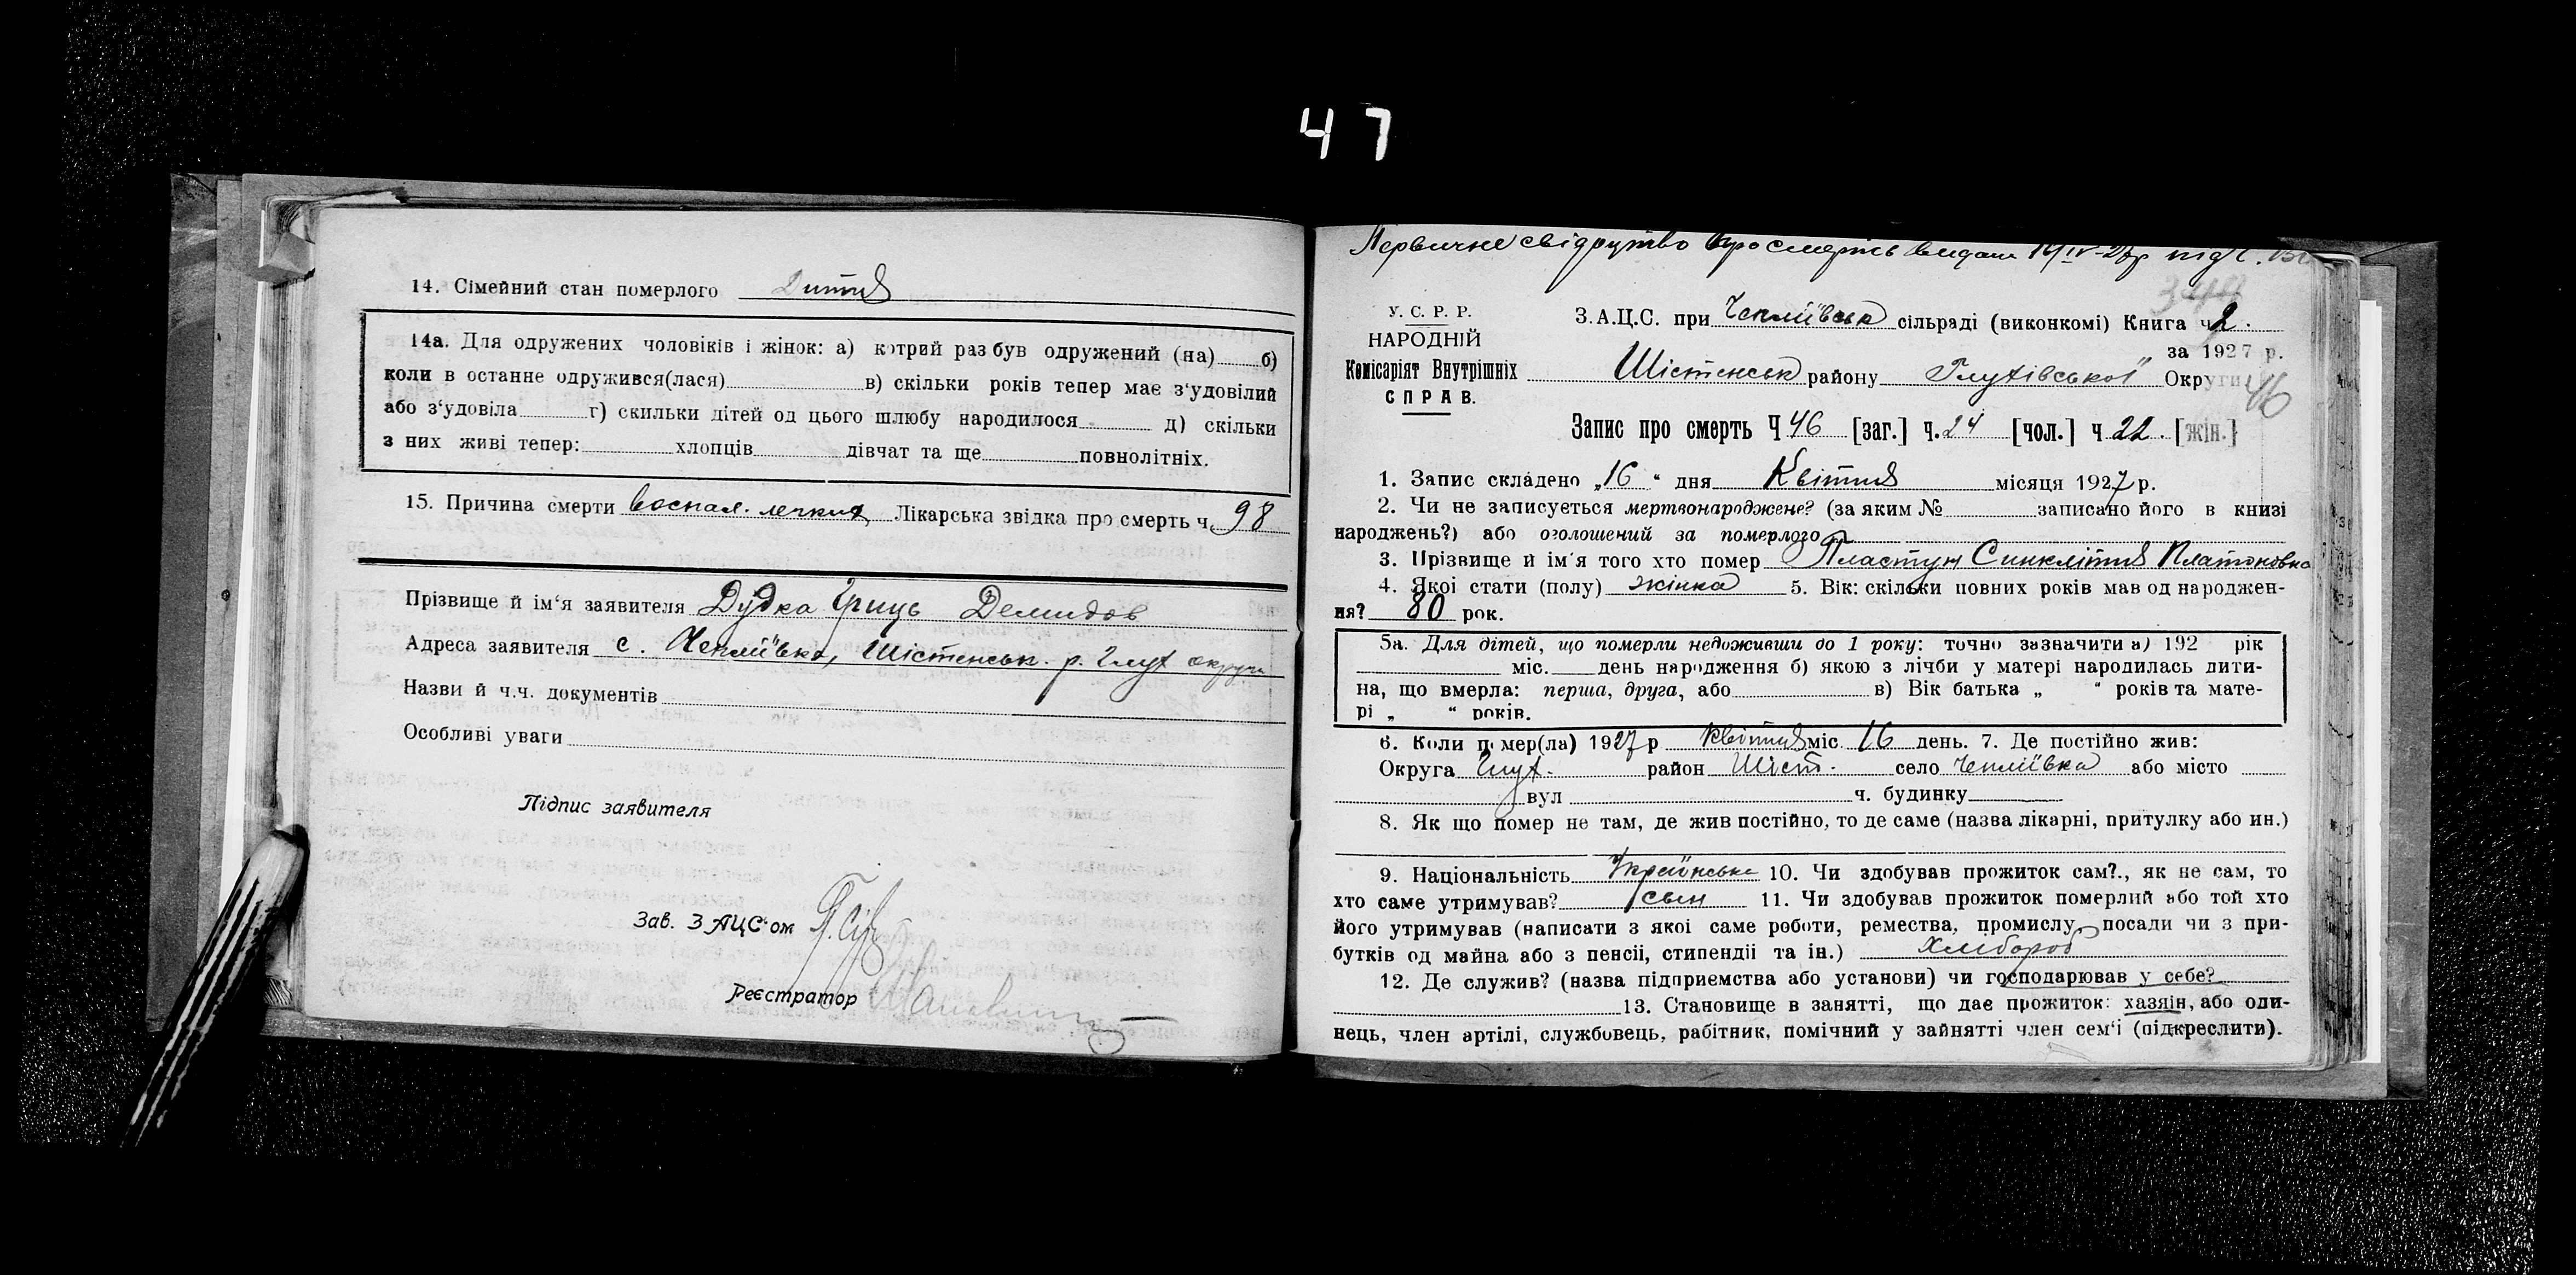 47
14. Сімейний стан померлого Дития
14а. Для одружених чоловіків і жінок: а) котрий раз був одружений (на) б)
коли в останне одружився(лася) в) скільки років тепер має з'удовілий
або з'удовіла г) скильки дітей од цього шлюбу народилося д) скільки
з них живі тепер: хлопців дівчат та ще повнолітніх.
15. Причина смерти воспал. легких Лікарська звідка про смерть ч. 98
Прізвище й ім'я заявителя Дудка Гриць Демидов
Адреса заявителя с. Чепліївка, Шістенськ. р. Глух округи
Назви й ч.ч. документів
Особливі уваги
Підпис заявителя
Зав. ЗАЦС-ом
Реєстратор
Первичне свідоцтво про смерть видане 16/IV-27р під ч.
У. С. Р. Р.
НАРОДНІЙ
Комісаріят Внутрішніх
СПРАВ.
344
З.А.Ц.С. при Чепліївськ сільраді (виконкомі) Книга ч. 2.
за 1927 р.
Шістенськ району Глухівської Округи 46
Запис про смерть Ч 46 [заг.] ч. 24 [чол.] ч 22. [жін.]
1. Запис складено „16“ дня Квітня місяця 1927 р.
2. Чи не записується мертвонароджене? (за яким № записано його в книзі
народжень?) або оголошений за померлого
3. Прізвище й ім'я того хто помер Пластун Синклітия Платоновна
4. Якої стати (полу) жінка 5. Вік: скільки повних років мав од народжен-
ня? 80 рок.
5а. Для дітей, що померли недоживши до 1 року: точно зазначити а) 192 рік
міс. день народження б) якою з лічби у матері народилась дити-
на, що вмерла: перша, друга, або в) Вік батька „ “ років та мате-
рі „ “ років.
6. Коли помер(ла) 1927 р Квітня міс. 16 день. 7. Де постійно жив:
Округа Глух. район Шіст. село Чепліївка або місто
вул ч. будинку
8. Як що помер не там, де жив постійно, то де саме (назва лікарні, притулку або ин.)
9. Національність Українське 10. Чи здобував прожиток сам?., як не сам, то
хто саме утримував? сын 11. Чи здобував прожиток померлий або той хто
його утримував (написати з якої саме роботи, ремества, промислу, посади чи з при-
бутків од майна або з пенсії, стипендії та ін.) Хлібороб
12. Де служив? (назва підприємства або установи) чи господарював у себе?
13. Становище в занятті, що дає прожиток: хазяїн, або оди-
нець, член артілі, службовець, рабітник, помічний у зайнятті член сем'ї (підкреслити).